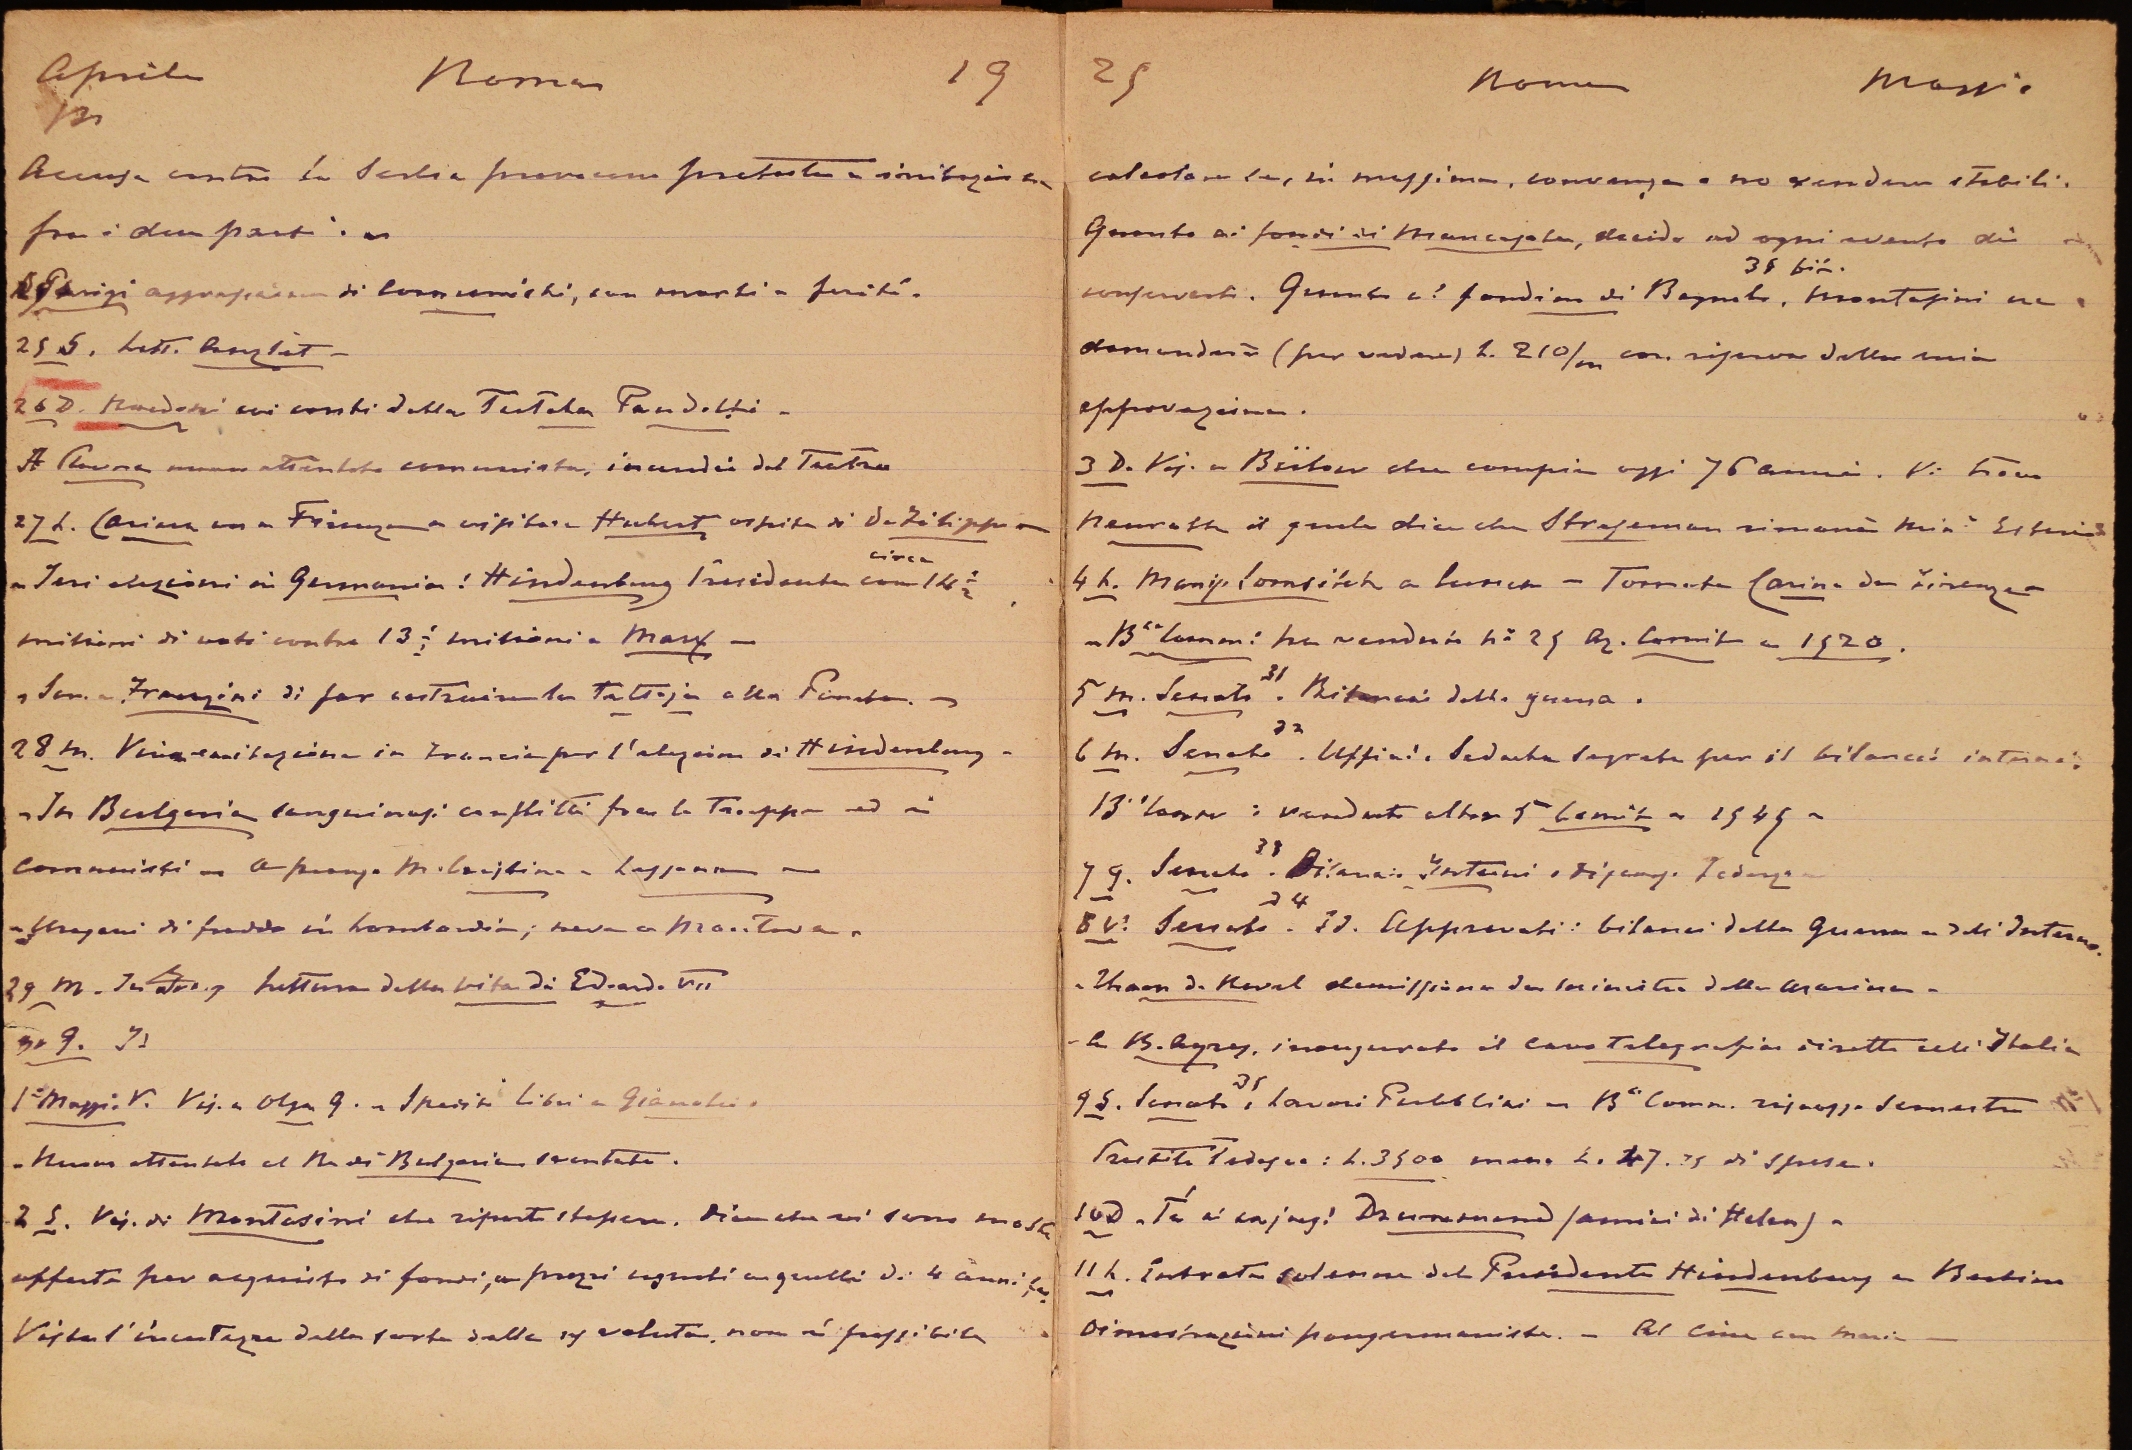 Aprile Roma 19
Accusa contro la Serbia provocano proteste e irritazione
fra i due paesi. —
A Parigi aggressione di comunisti, con morti e feriti.
25 S. Lett.
26 D. sui conti della Tutela Pandolfi —
A nuovo attentato comunista, incendio del Teatro
27 L. Carina va a Firenze a visitare Hubert ospite di De Filippi —
— Ieri elezioni in Germania: Hindenburg Presidente con circa 14 ½
milioni di voti contro 13 ½ milioni a Marx —
di far costruire la tettoja alla —
28 M. Viva eccitazione in Francia per l'elezione di Hindenburg —
— In Bulgaria sanguinosi conflitti fra le truppe ed i
comunisti — A pranzo M. —
— Uragani di freddo in Lombardia; neve a Mantova.
29 M. Lettura della vita di Edoardo VII
30 G. Id
1º Maggio V. Vis. a Olga G. — Spediti libri a
— Nuovo attentato al Re di Bulgaria sventato.
2 S. Vis. di Montesini che riparte stasera. Dice che vi sono molte
offerte per acquisto di fondi, a prezzi uguali a quelli di 4 anni fa.
Vista l'incertezza della sorte della valuta, non è possibile
25 Roma Maggio
calcolare se, in massima, convenga o no vendere stabili.
Quanto ai fondi di decido ad ogni evento di
conservarli. Quanto al fondino di Bagnolo, 35 bia. Montesini ne
domanderà (per vedere) L. 210/m con riserva della mia
approvazione.
3 D. Vis. a Bülow che compie oggi 76 anni. Vi trovo
Neurath il quale dice che Stresemann rimarrà Minº Esteri
4 L. — Tornata Carina da Firenze —
— Bca Comm: ha venduto Nº 25 Az. Comit a 1520.
5 M. Senato 31. Bilancio della guerra.
6 M. Senato 32. Uffici. Seduta segreta per il bilancio interni.
: vendute altre 5 Comit a 1545 —
7 G. Senato 33. Bilancio Interni.
8 V. Senato 34. Id. Approvati: bilanci della Guerra e dell'Interno.
— Thaon de Revel dimissiona da ministro della Marina —
— A B. Ayres, inaugurato il cavo telegrafico diretto coll'Italia
9 S. Senato 35. Lavori Pubblici — Bca Comm. riscosso semestre
Prestito Tedesco: L. 3500 meno L. 47.75 di spese.
10 D. — Tè ai conjugi Drummond (amici di Helen) —
11 L. Entrata solenne del Presidente Hindenburg a Berlino
Dimostrazioni pangermaniste. — Al Cine con Maria —